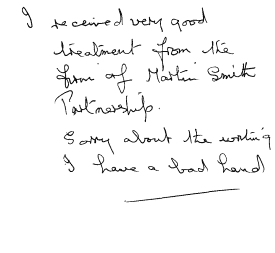 I received very good
treatment from the
firm of Martin Smith
Partnership.
Sorry about the writing
I have a bad hand